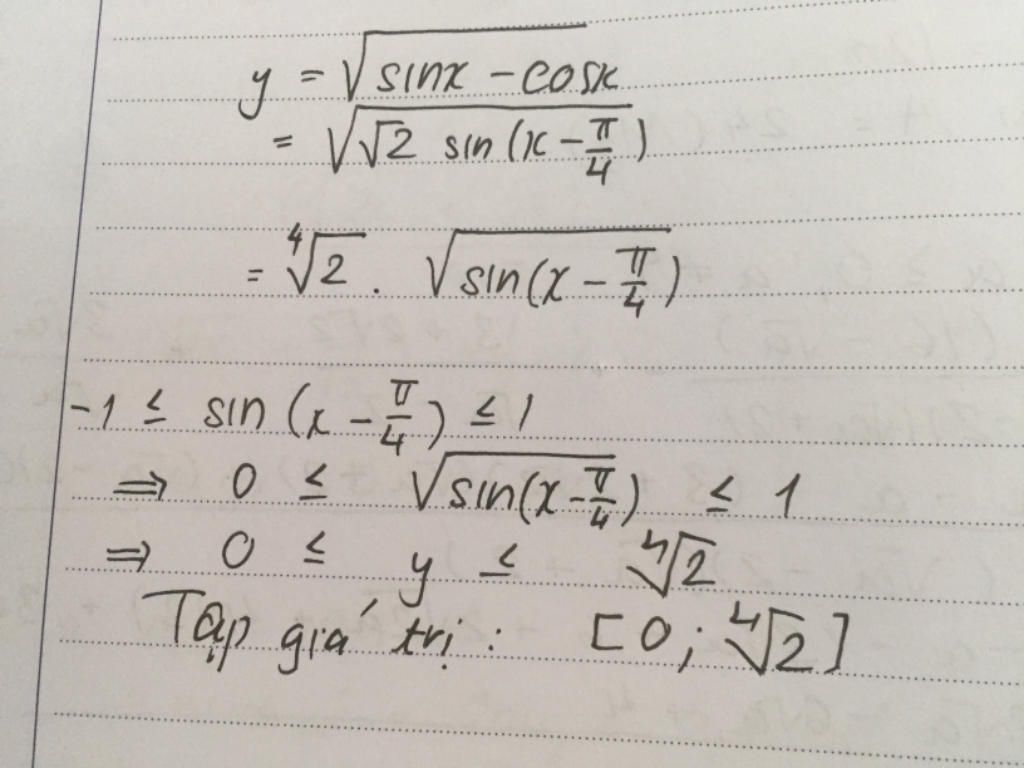 y = √(sinx - cosx)
= √(√2 sin(x - π/4))
= ⁴√2 . √(sin(x - π/4))
-1 ≤ sin (x - π/4) ≤ 1
⇒ 0 ≤ √(sin(x - π/4)) ≤ 1
⇒ 0 ≤ y ≤ ⁴√2
Tập giá trị : [0; ⁴√2]